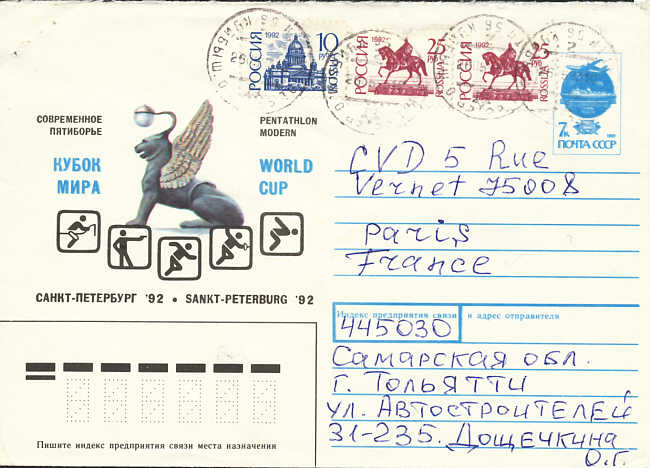 РОССИЯ 1992 10 РУБ ROSSIJA
РОССИЯ 1992 25 РУБ ROSSIJA
РОССИЯ 1992 25 ROSSIJA
7 к.
ПОЧТА СССР
СОВРЕМЕННОЕ
ПЯТИБОРЬЕ
КУБОК
МИРА
PENTATHLON
MODERN
WORLD
CUP
САНКТ-ПЕТЕРБУРГ '92 • SANKT-PETERBURG '92
CVD 5 Rue
Vernet 75008
Paris
France
Индекс предприятия связи и адрес отправителя
445030
Самарская обл.
г. Тольятти
ул. Автостроителей
31-235. Дощечкина
О.Г.
Пишите индекс предприятия связи места назначения